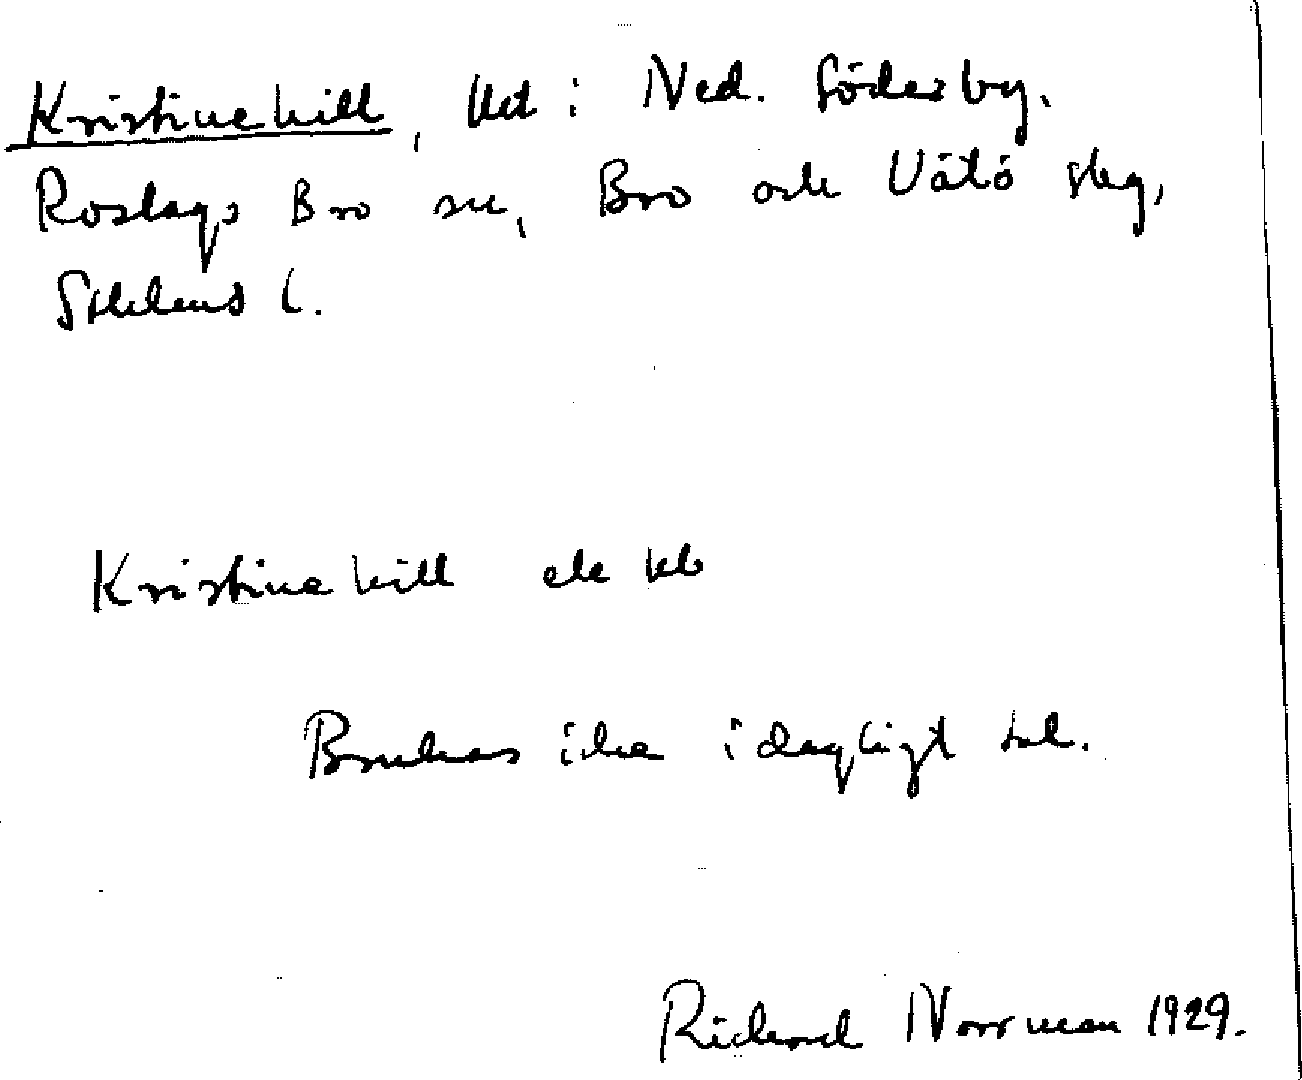 Kristinehill, lht i Ned. Söderby.
Roslags Bro sn, Bro och Vätö skg,
Sthlms l.
Kristinehill ek kb
Brukas icke i dagligt tal.
Richard Norrman 1929.